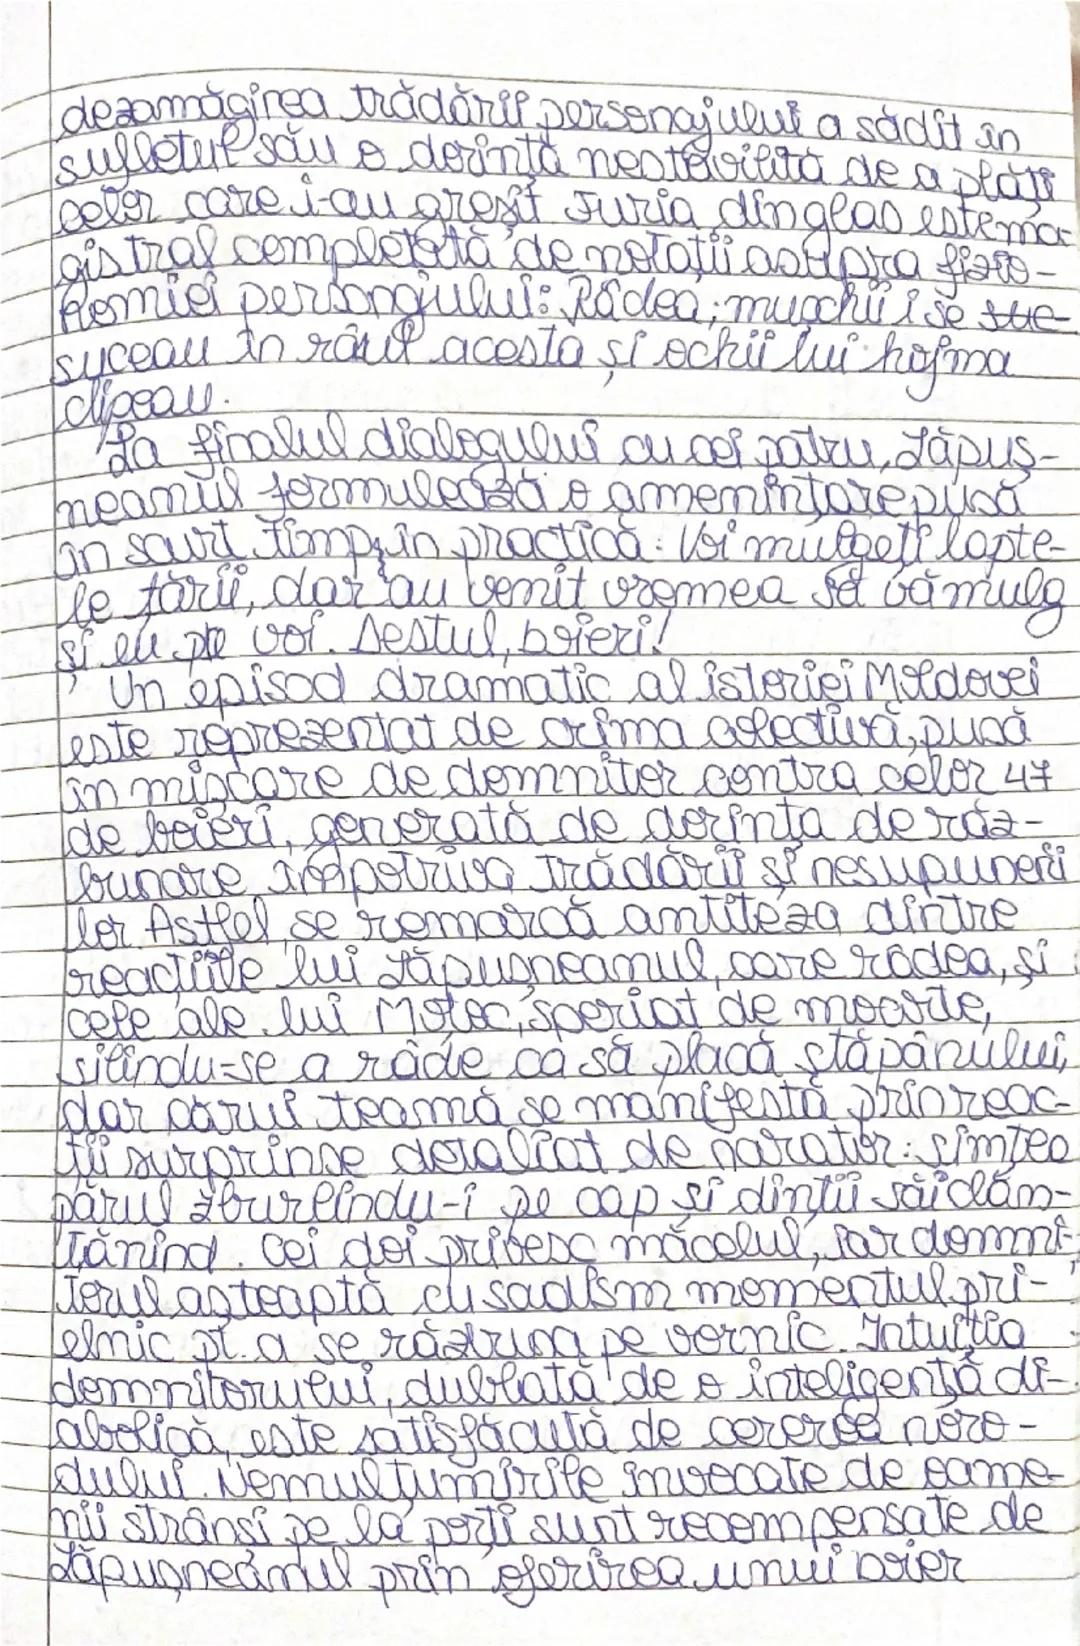 dezamăgirea trădării personajului a sădit în
sufletul său o dorință nestăvilită de a plăti
celor care i-au greșit Furia din glas este ma-
gistral completată de notații asupra fizio-
nomiei personajului: Râdea; mușchii i se sue
suceau în râul acesta și ochii lui hojma
clipeau.
La finalul dialogului cu cei patru, Lăpuș-
neanul formulează o amenințare pusă
în scurt timp în practică: Voi mulgeți lapte-
le țării, dar au venit vremea să vă mulg
și eu pe voi. Destul, boieri!
Un episod dramatic al istoriei Moldovei
este reprezentat de crima colectivă, pusă
în mișcare de domnitor contra celor 47
de boieri, generată de dorința de răz-
bunare împotriva trădării și nesupunerii
lor Astfel, se remarcă antiteza dintre
reacțiile lui Lăpușneanul, care râdea, și
cele ale lui Moțoc, speriat de moarte,
silindu-se a râde ca să placă stăpânului,
dar cărui teamă se manifestă prin reac-
ții surprinse detaliat de narator: simțea
părul zburlindu-i pe cap și dinții săi clăn-
țănind. Cei doi privesc măcelul, iar domni-
torul așteaptă cu sadism momentul pri-
elnic pt. a se răzbuna pe vornic. Intuiția
domnitorului, dublată de o inteligență di-
abolică, este satisfăcută de cererea noro-
dului. Nemulțumirile invocate de oame-
nii strânși pe la porți sunt recompensate de
Lăpușneanul prin oferirea unui boier